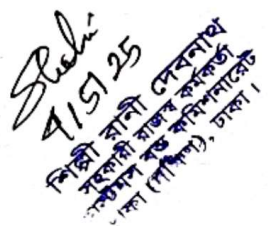 ৭/5/25
শিল্পী রানী দেবনাথ
সহকারী রাজস্ব কর্মকর্তা
কাস্টমস বন্ড কমিশনারেট
ঢাকা (দক্ষিণ), ঢাকা।